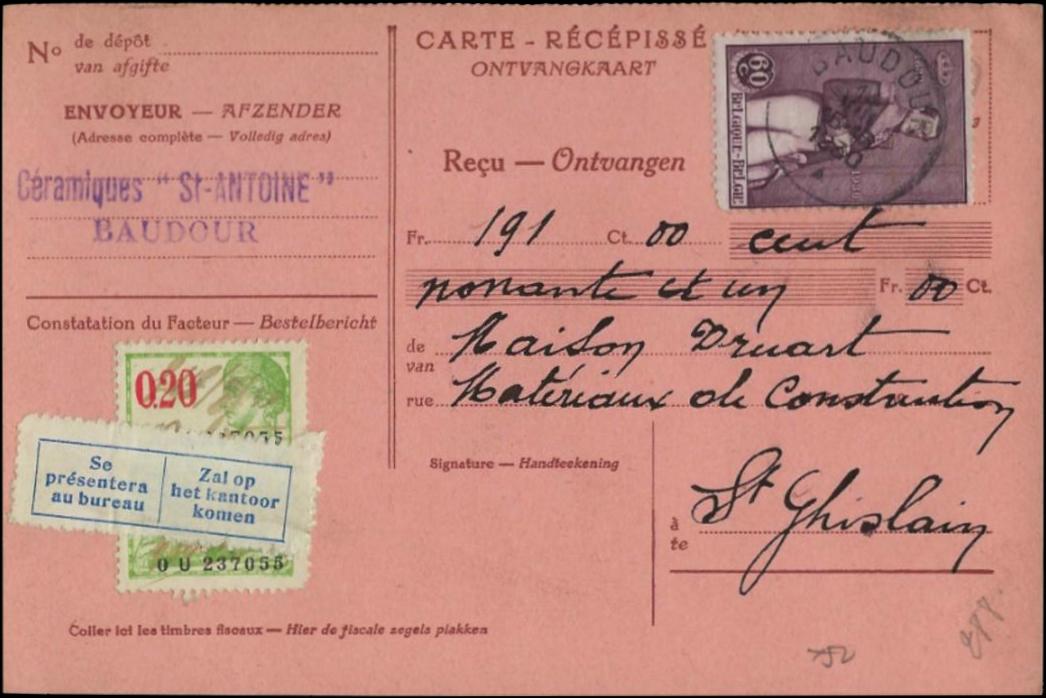 No de dépôt
van afgifte
ENVOYEUR — AFZENDER
(Adresse complète — Volledig adres)
Céramiques "St-ANTOINE"
BAUDOUR
Constatation du Facteur — Bestelbericht
0.20
237055
Se présentera au bureau
Zal op het kantoor komen
O U 237055
Coller ici les timbres fiscaux — Hier de fiscale zegels plakken
CARTE - RÉCÉPISSÉ
ONTVANGKAART
60 c
BELGIQUE-BELGIË
BAUDOUR
1930
Reçu — Ontvangen
Fr. 191 Ct. 00 cent
nonante et un Fr. 00 Ct.
de
van
Maison Druart
rue Matériaux de Construction
Signature — Handteekening
à
te
St Ghislain